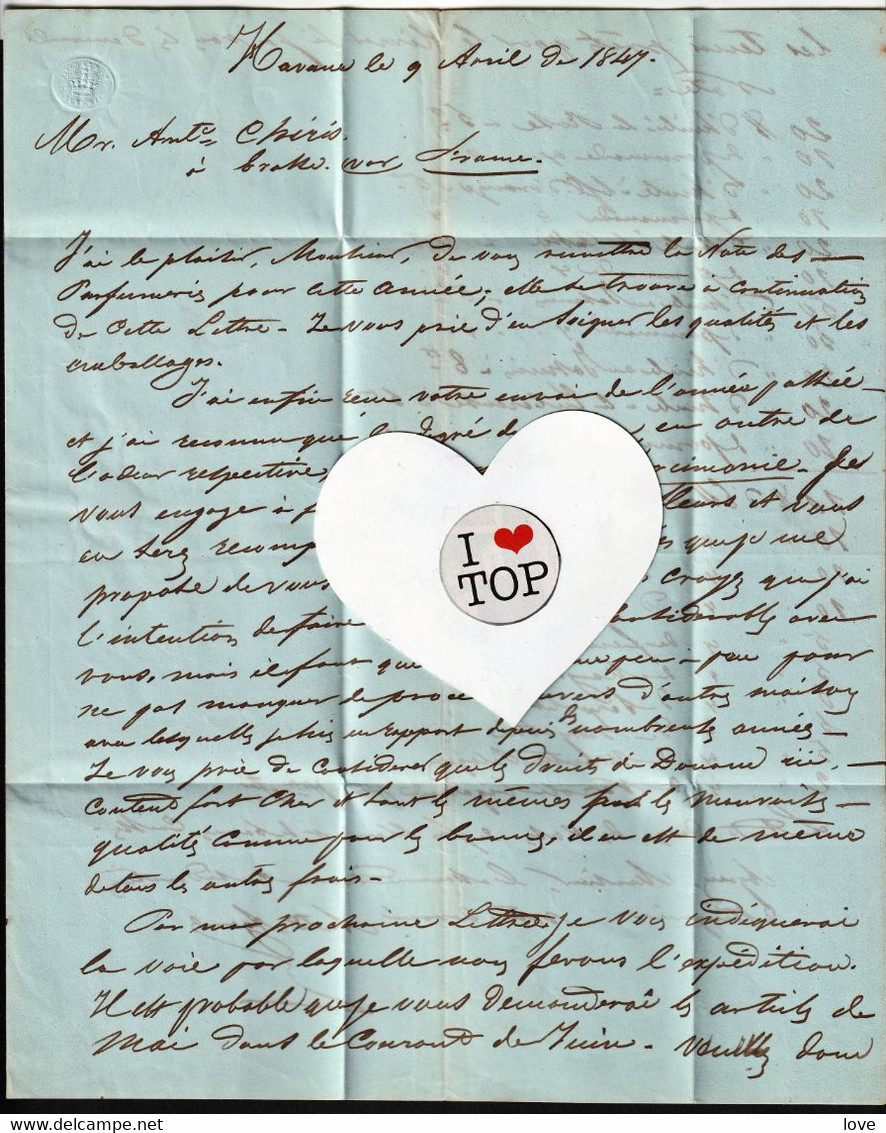 Havane le 9 Avril de 1847.
Mr. Antne Chiris.
à Grasse. var France.
J'ai le plaisir, Monsieur, de vous remettre la Note des
Parfumeries pour cette année; elle se trouve à continuation
de cette Lettre - Je vous prie d'en soigner les qualités et les
emballages.
J'ai enfin reçu votre envoi de l'année passée
et j'ai reconnu que le degré de en outre de
l'odeur respective, Je
vous engage à et vous
en serez que je me
propose de vous croyez que j'ai
l'intention de faire considerables avec
vous, mais il faut que peu-à-peu pour
ne pas manquer de d'autres maisons
avec lesquelles je suis en rapport depuis de nombreuses années -
Je vous prie de considerer que les droits de Douane ici
content fort cher et sont les mêmes pour les mauvaises
qualités comme pour les bonnes, il en est de même
de tous les autres frais -
Par ma prochaine Lettre je vous indiquerai
la voie par laquelle vous ferons l'expédition.
Il est probable que je vous demanderai les articles de
Mai dans le Courant de Juin - veuillez donc
I ❤ TOP
Delcampe.net
love